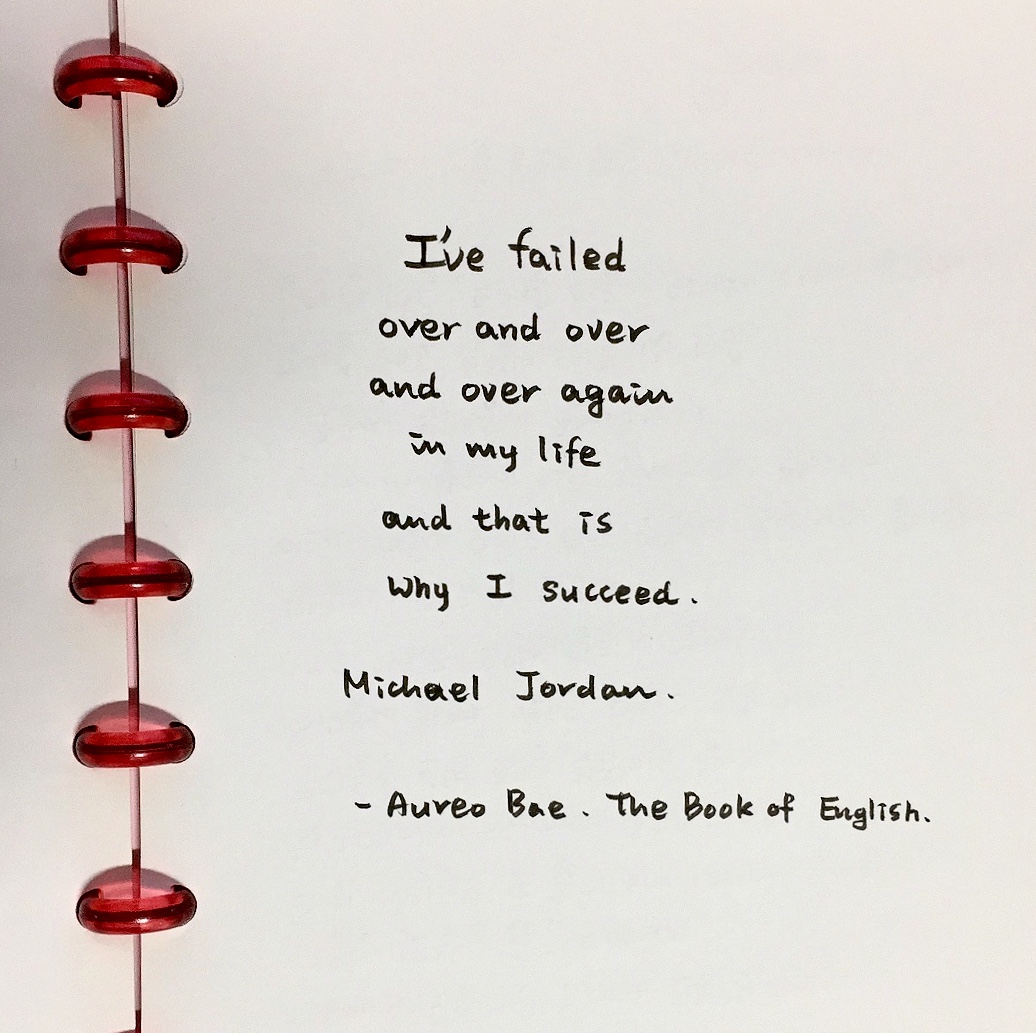 I've failed
over and over
and over again
in my life
and that is
why I succeed.
Michael Jordan.
- Aureo Bae. The Book of English.